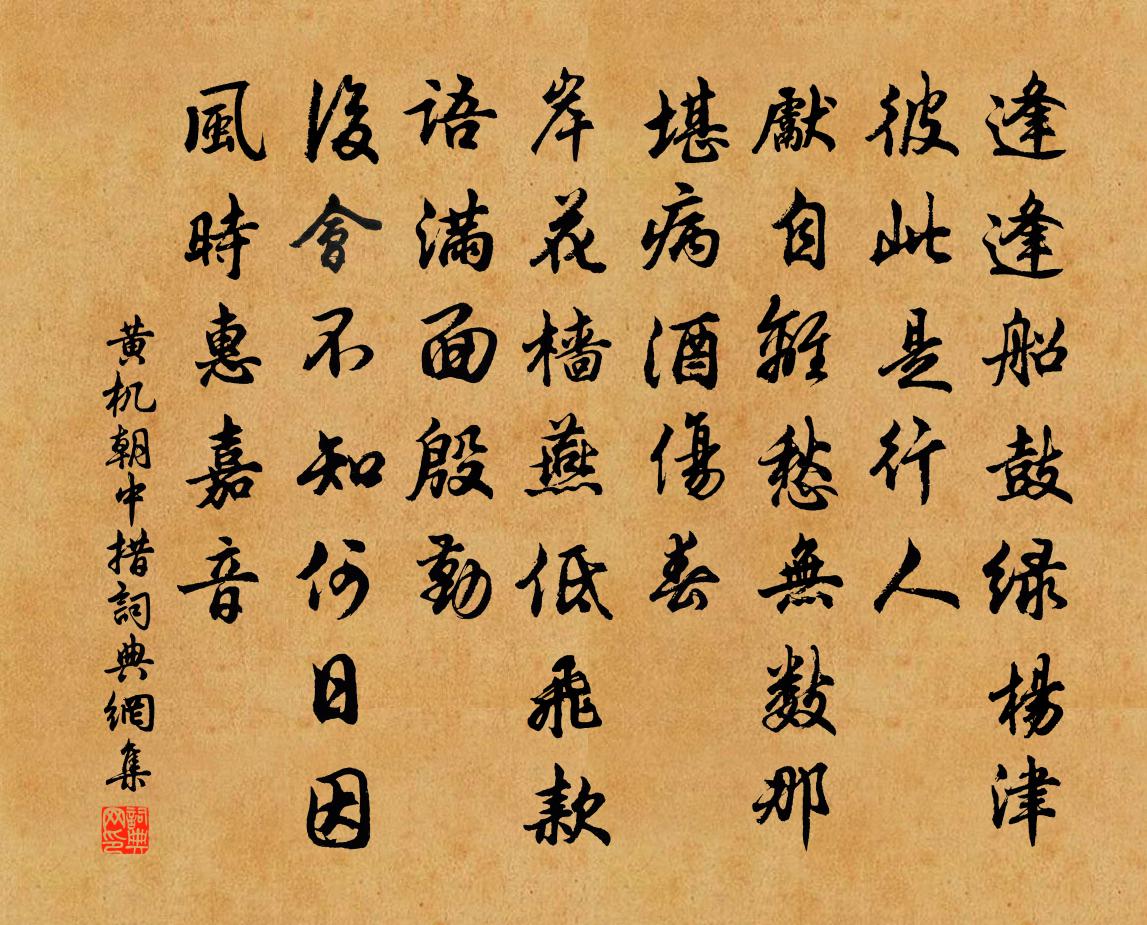 逢逢船鼓綠楊津
彼此是行人
獻自離愁無數那
堪病酒傷春
岸花檣燕低飛款
語滿面殷勤
後會不知何日因
風時惠嘉音
黄机朝中措詞典網集
詞典网印